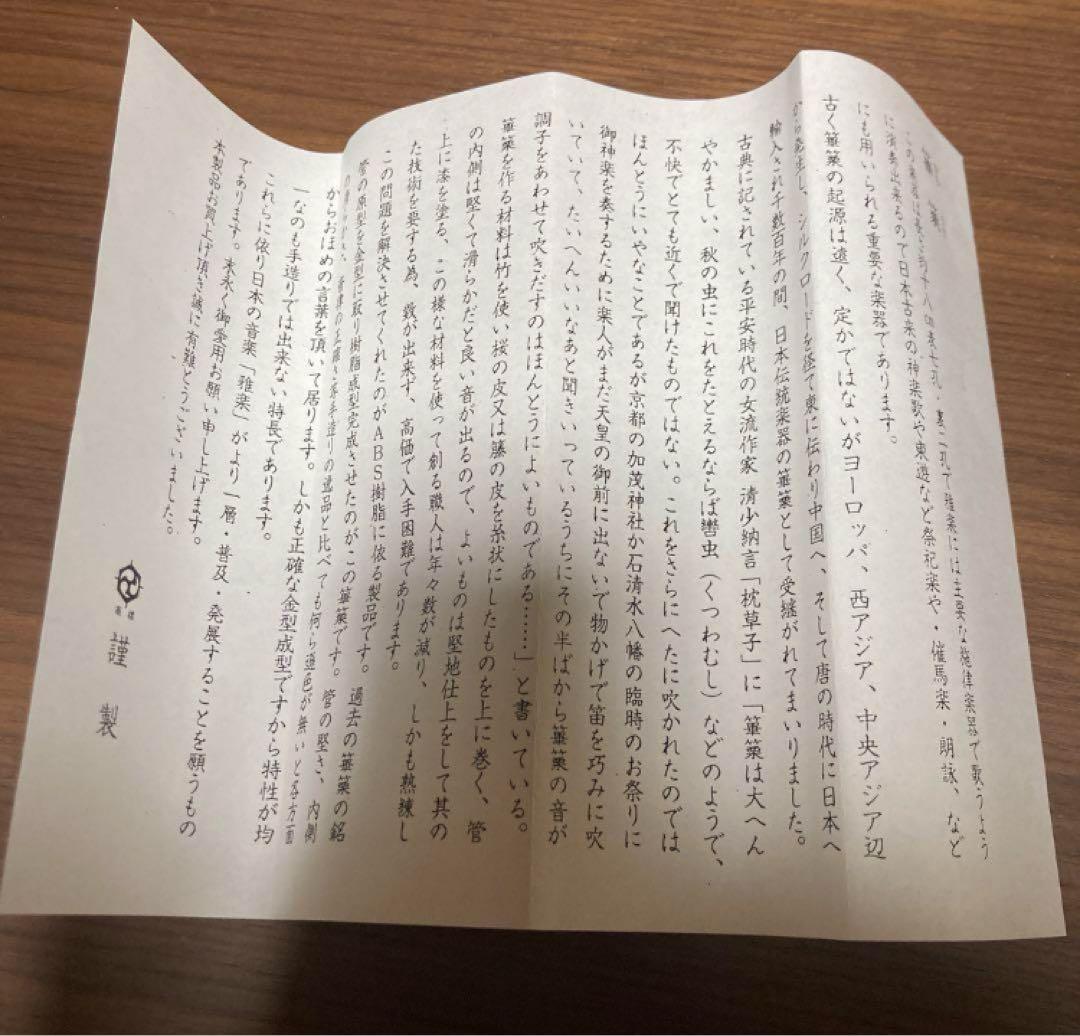 篳篥
この楽器は長さ六寸 表七孔・裏二孔で雅楽には主要な旋律楽器で歌うよう
に演奏出来るので日本古来の神楽歌や東遊など祭祀楽や・催馬楽・朗詠、など
にも用いられる重要な楽器であります。
古く篳篥の起源は遠く、定かではないがヨーロッパ、西アジア、中央アジア辺
から発生し、シルクロードを経て東に伝わり中国へ、そして唐の時代に日本へ
輸入され千数百年の間、日本伝統楽器の篳篥として受継がれてまいりました。
古典に記されている平安時代の女流作家 清少納言「枕草子」に「篳篥は大へん
やかましい、秋の虫にこれをたとえるならば轡虫（くつわむし）などのようで、
不快でとても近くで聞けたものではない。これをさらにへたに吹かれたのでは
ほんとうにいやなことであるが京都の加茂神社か石清水八幡の臨時のお祭りに
御神楽を奏するために楽人がまだ天皇の御前に出ないで物かげで笛を巧みに吹
いていて、たいへんいいなあと聞きいっているうちにその半ばから篳篥の音が
調子をあわせて吹きだすのはほんとうによいものである……」と書いている。
篳篥を作る材料は竹を使い桜の皮又は籐の皮を糸状にしたものを上に巻く、管
の内側は堅くて滑らかだと良い音が出るので、よいものは堅地仕上をして其の
上に漆を塗る、この様な材料を使って創る職人は年々数が減り、しかも熟練し
た技術を要する為、数が出来ず、高価で入手困難であります。
この問題を解決させてくれたのがＡＢＳ樹脂に依る製品です。過去の篳篥の銘
管の原型を金型に取り樹脂成型完成させたのがこの篳篥です。管の堅さ、内側
音律の正確さ等手造りの逸品と比べても何ら遜色が無いと各方面
からおほめの言葉を頂いて居ります。しかも正確な金型成型ですから特性が均
一なのも手造りでは出来ない特長であります。
これらに依り日本の音楽「雅楽」がより一層・普及・発展することを願うもの
であります。末永く御愛用お願い申し上げます。
本製品お買上げ頂き誠に有難とうございました。
謹製